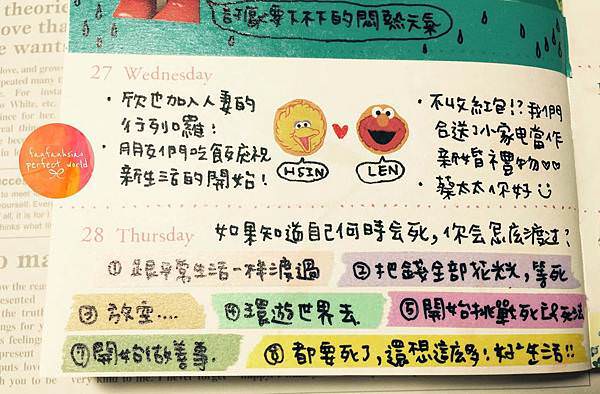 討厭要下不下的悶熱天氣
27 Wednesday
・欣也加入人妻的
行列囉!
・朋友們吃飯慶祝
新生活的開始!
HSIN
LEN
・不收紅包!? 我們
合送了小家电當作
新婚禮物♡♡
・蔡太太你好
fanfanhsiao
perfect world
28 Thursday
如果知道自己何時会死,你会怎么渡过?
①跟平常生活一樣渡過
②把錢全部花光光,等死
③放空....
④環遊世界去
⑤開始挑戰死亡
⑦開始做善事.
⑧都要死了,還想這么多!好好生活!!